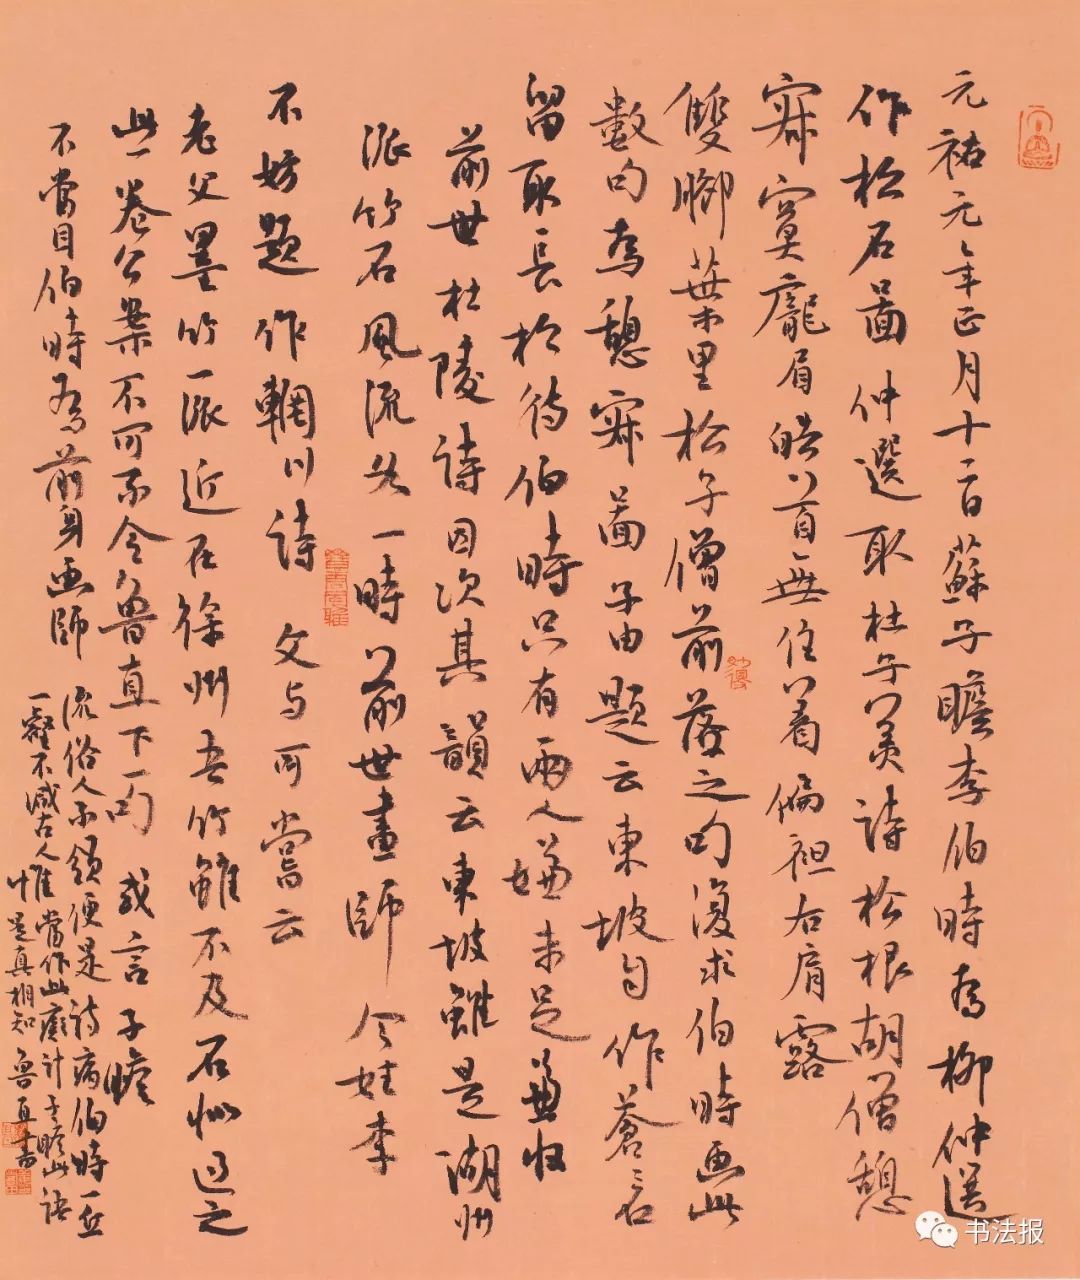 元祐元年正月十二日蘇子瞻李伯時為柳仲遠
作松石圖仲選取杜子美詩松根胡僧憩
寂寞龐眉皓首無住著偏袒右肩露
雙腳葉里松子僧前落之句復求伯時画此
數句為憩寂圖子由題云東坡自作蒼蒼石
留取長松待伯時只有兩人嫌未足兼收
前世杜陵詩因次其韻云東坡雖是湖州
派竹石風流各一時前世畫師今姓李
不妨題作輞川詩 文与可嘗云
老父墨竹一派近在徐州吾竹雖不及石似過之
此一卷公案不可不令魯直下一句 或言子瞻
不當目伯時為前身画師
流俗人不領便是詩病伯時一丘
一壑不減古人惟當作此癡計子瞻此語
惟是真相知魯直書
书法报